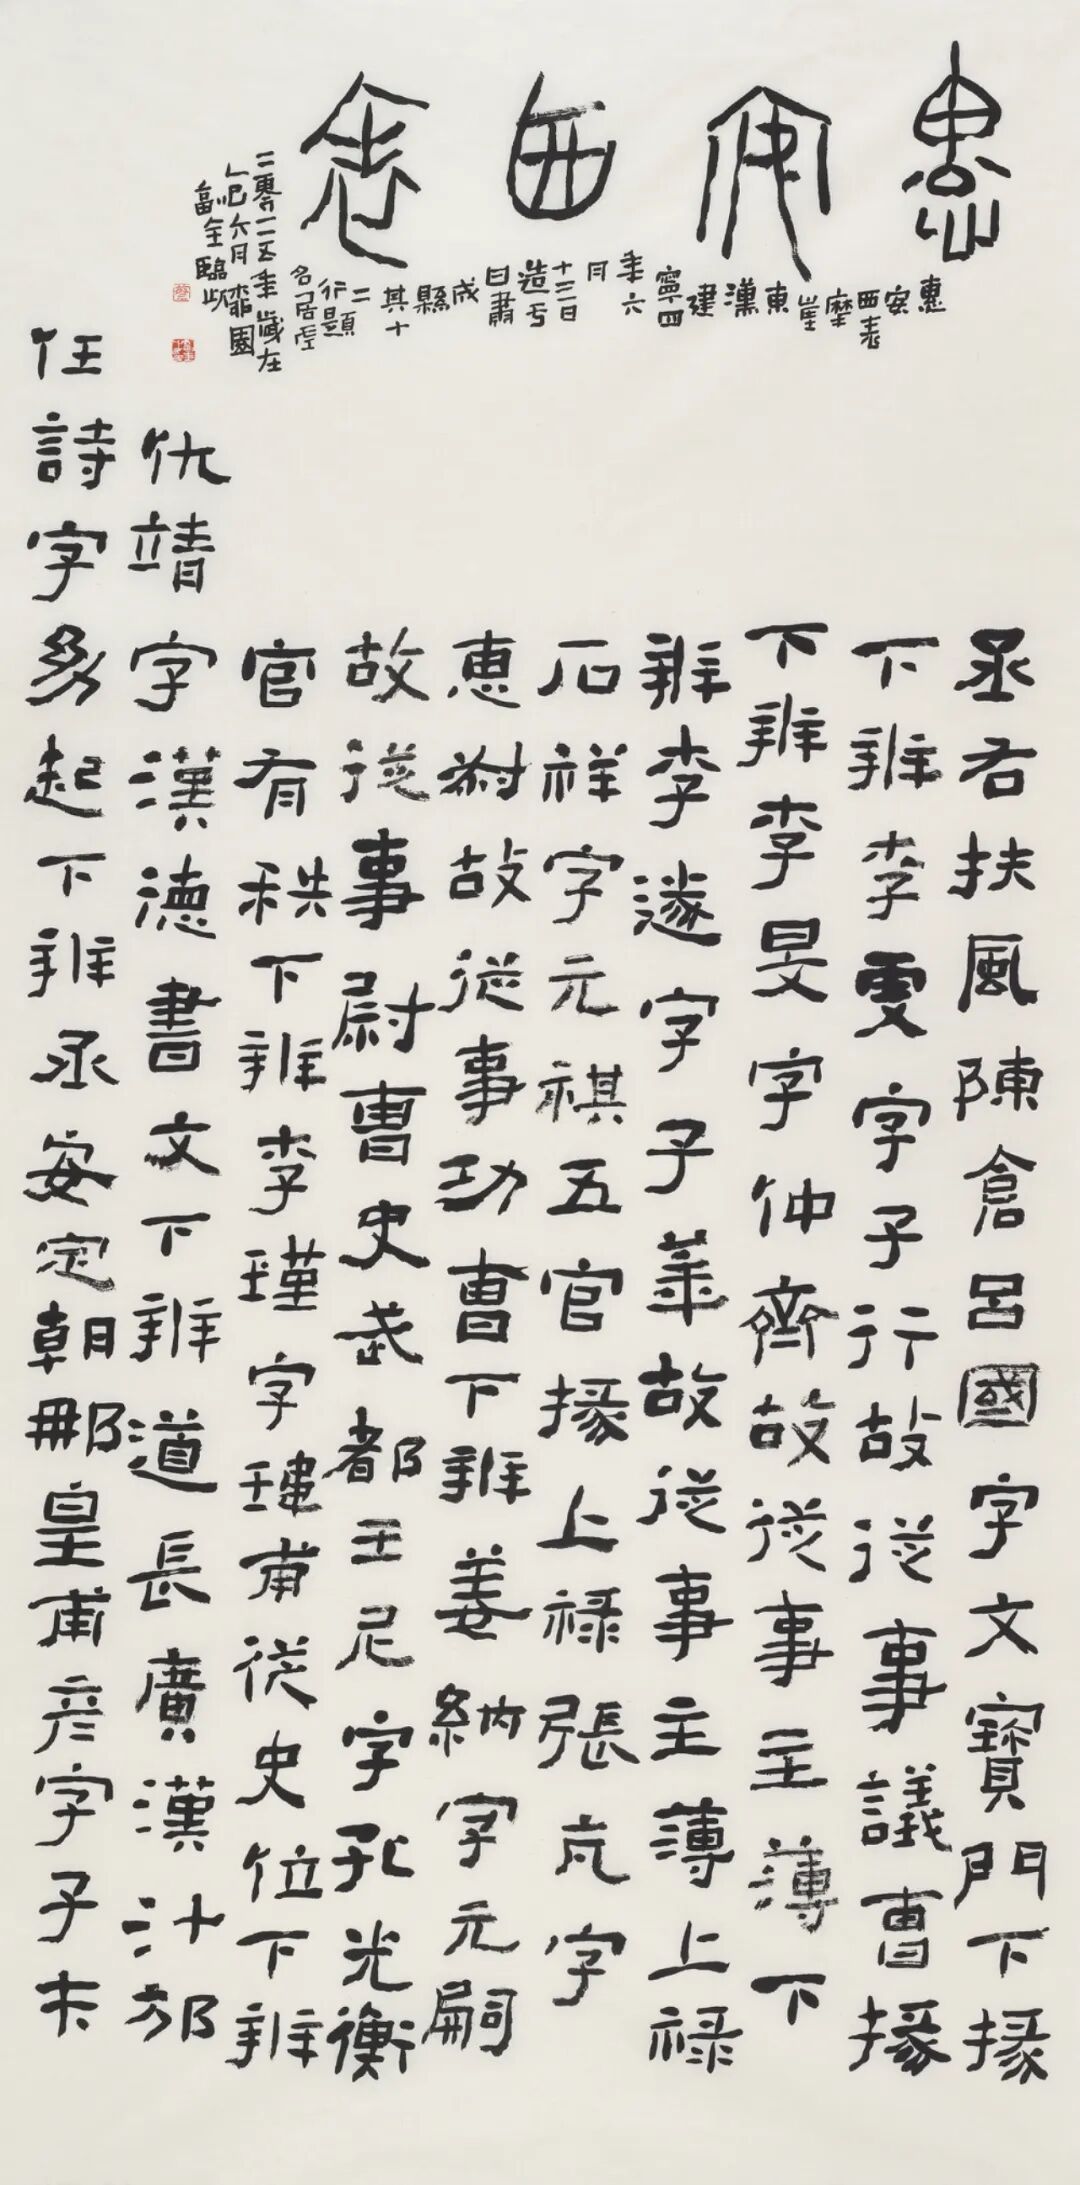 惠安西表
惠安
西表
摩崖
東
漢
建
寧四
年六
月
十三日
造亏
甘肅
成
縣
其十
二
行題
名居
二零二五年歲在
乙巳六月霖園
臨此
丞右扶風陳倉呂國字文寶門下掾
下辨李虔字子行故從事議曹掾
下辨李旻字仲齊故從事主薄下
辨李遂字子華故從事主薄上祿
石祥字元祺五官掾上祿張亢字
惠叔故從事功曹下辨姜納字元嗣
故從事尉曹史武都王尼字孔光衡
官有秩下辨李瑾字瑋甫從史位下辨
仇靖字漢德書文下辨道長廣漢汁邡
任詩字幼起下辨丞安定朝那皇甫彦字子才